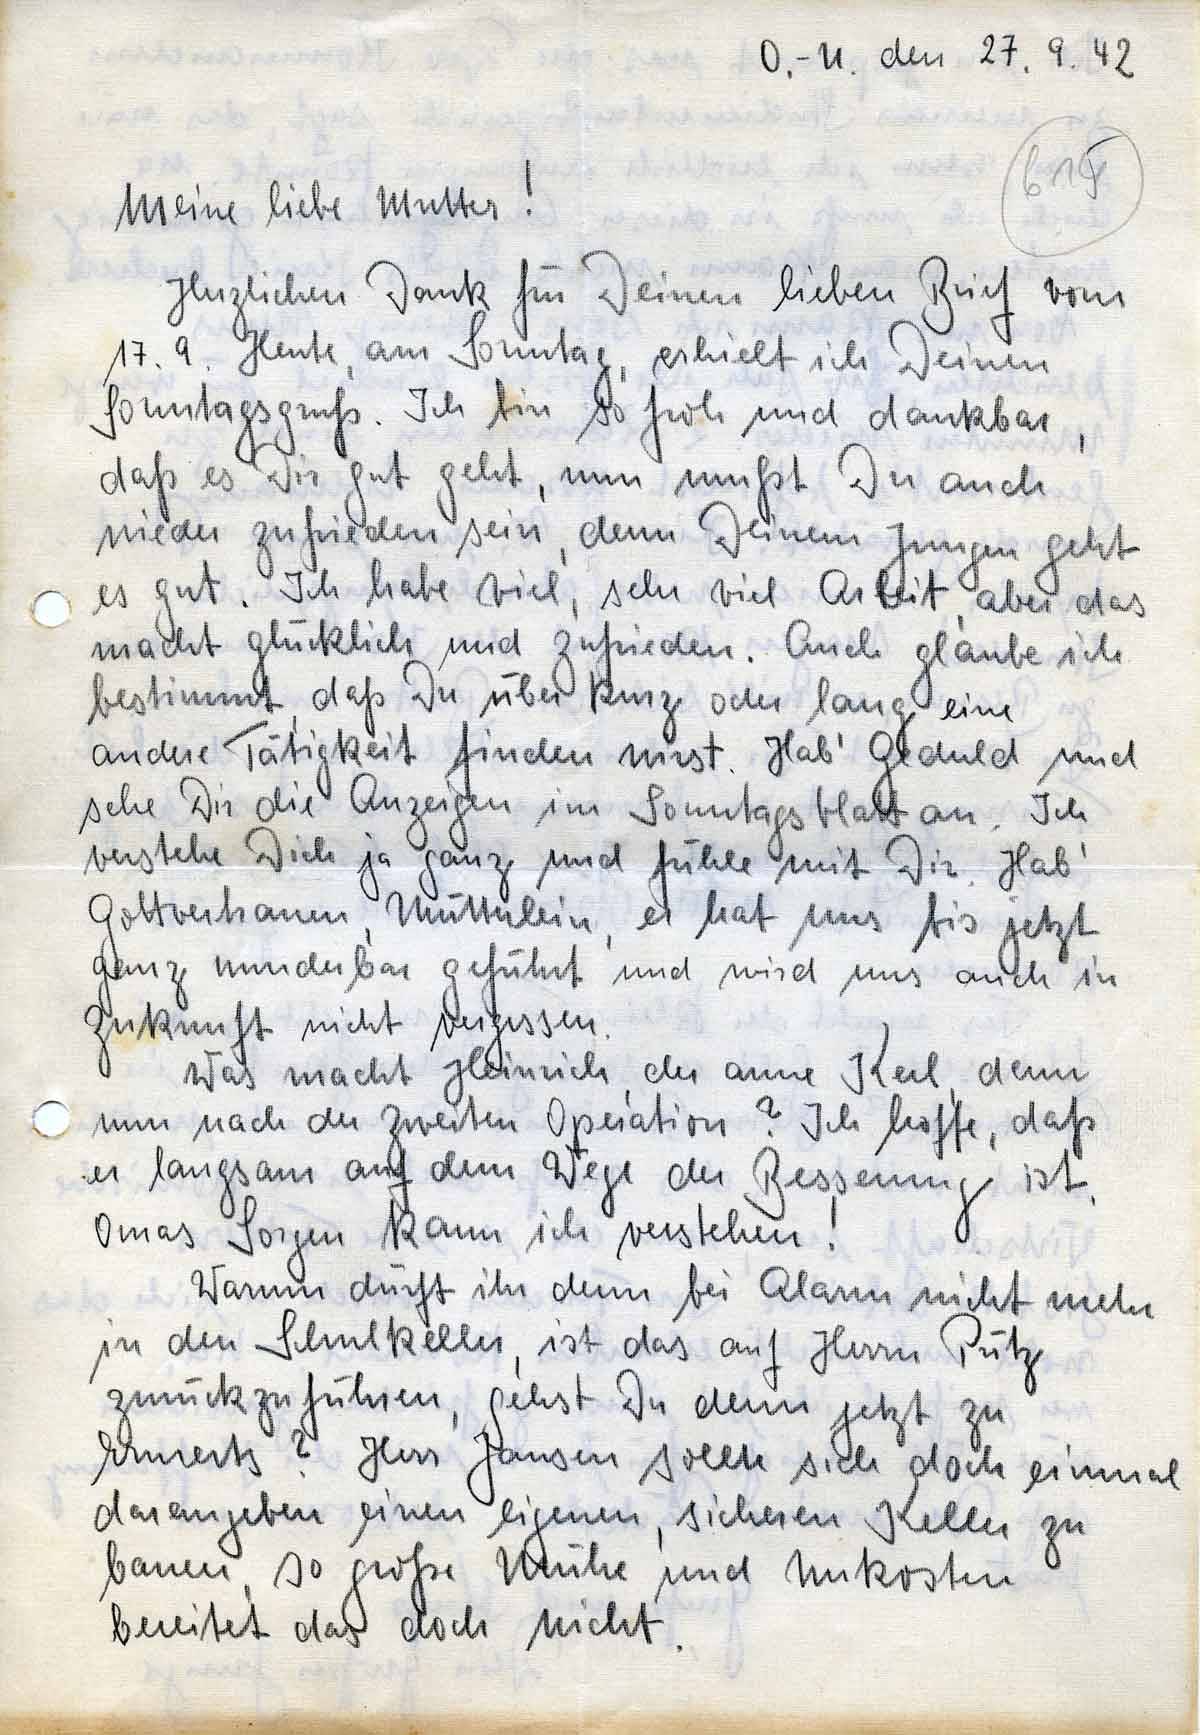 O.-U. den 27. 9. 42
Meine liebe Mutter!
Herzlichen Dank für Deinen lieben Brief vom
17. 9. Heute, am Sonntag, erhielt ich Deinen
Sonntagsgruß. Ich bin so froh und dankbar,
daß es Dir gut geht, nun mußt Du auch
wieder zufrieden sein, denn Deinem Jungen geht
es gut. Ich habe viel, sehr viel Arbeit, aber das
macht glücklich und zufrieden. Auch glaube ich
bestimmt, daß Du über kurz oder lang eine
andere Tätigkeit finden wirst. Hab' Geduld und
sehe Dir die Anzeigen im Sonntagsblatt an. Ich
verstehe Dich ja ganz und fühle mit Dir. Hab'
Gottvertrauen, Mütterlein, er hat uns bis jetzt
ganz wunderbar geführt und wird uns auch in
Zukunft nicht vergessen.
Was macht Heinrich, der arme Kerl, denn
nun nach der zweiten Operation? Ich hoffe, daß
er langsam auf dem Wege der Besserung ist.
Omas Sorgen kann ich verstehen!
Warum dürft ihr denn bei Alarm nicht mehr
in den Schulkeller, ist das auf Herrn Pütz
zurückzuführen, gehst Du denn jetzt zu
? Herr Jansen sollte sich doch einmal
darangeben einen eigenen, sicheren Keller zu
bauen, so große Mühe und Unkosten
bereitet das doch nicht.